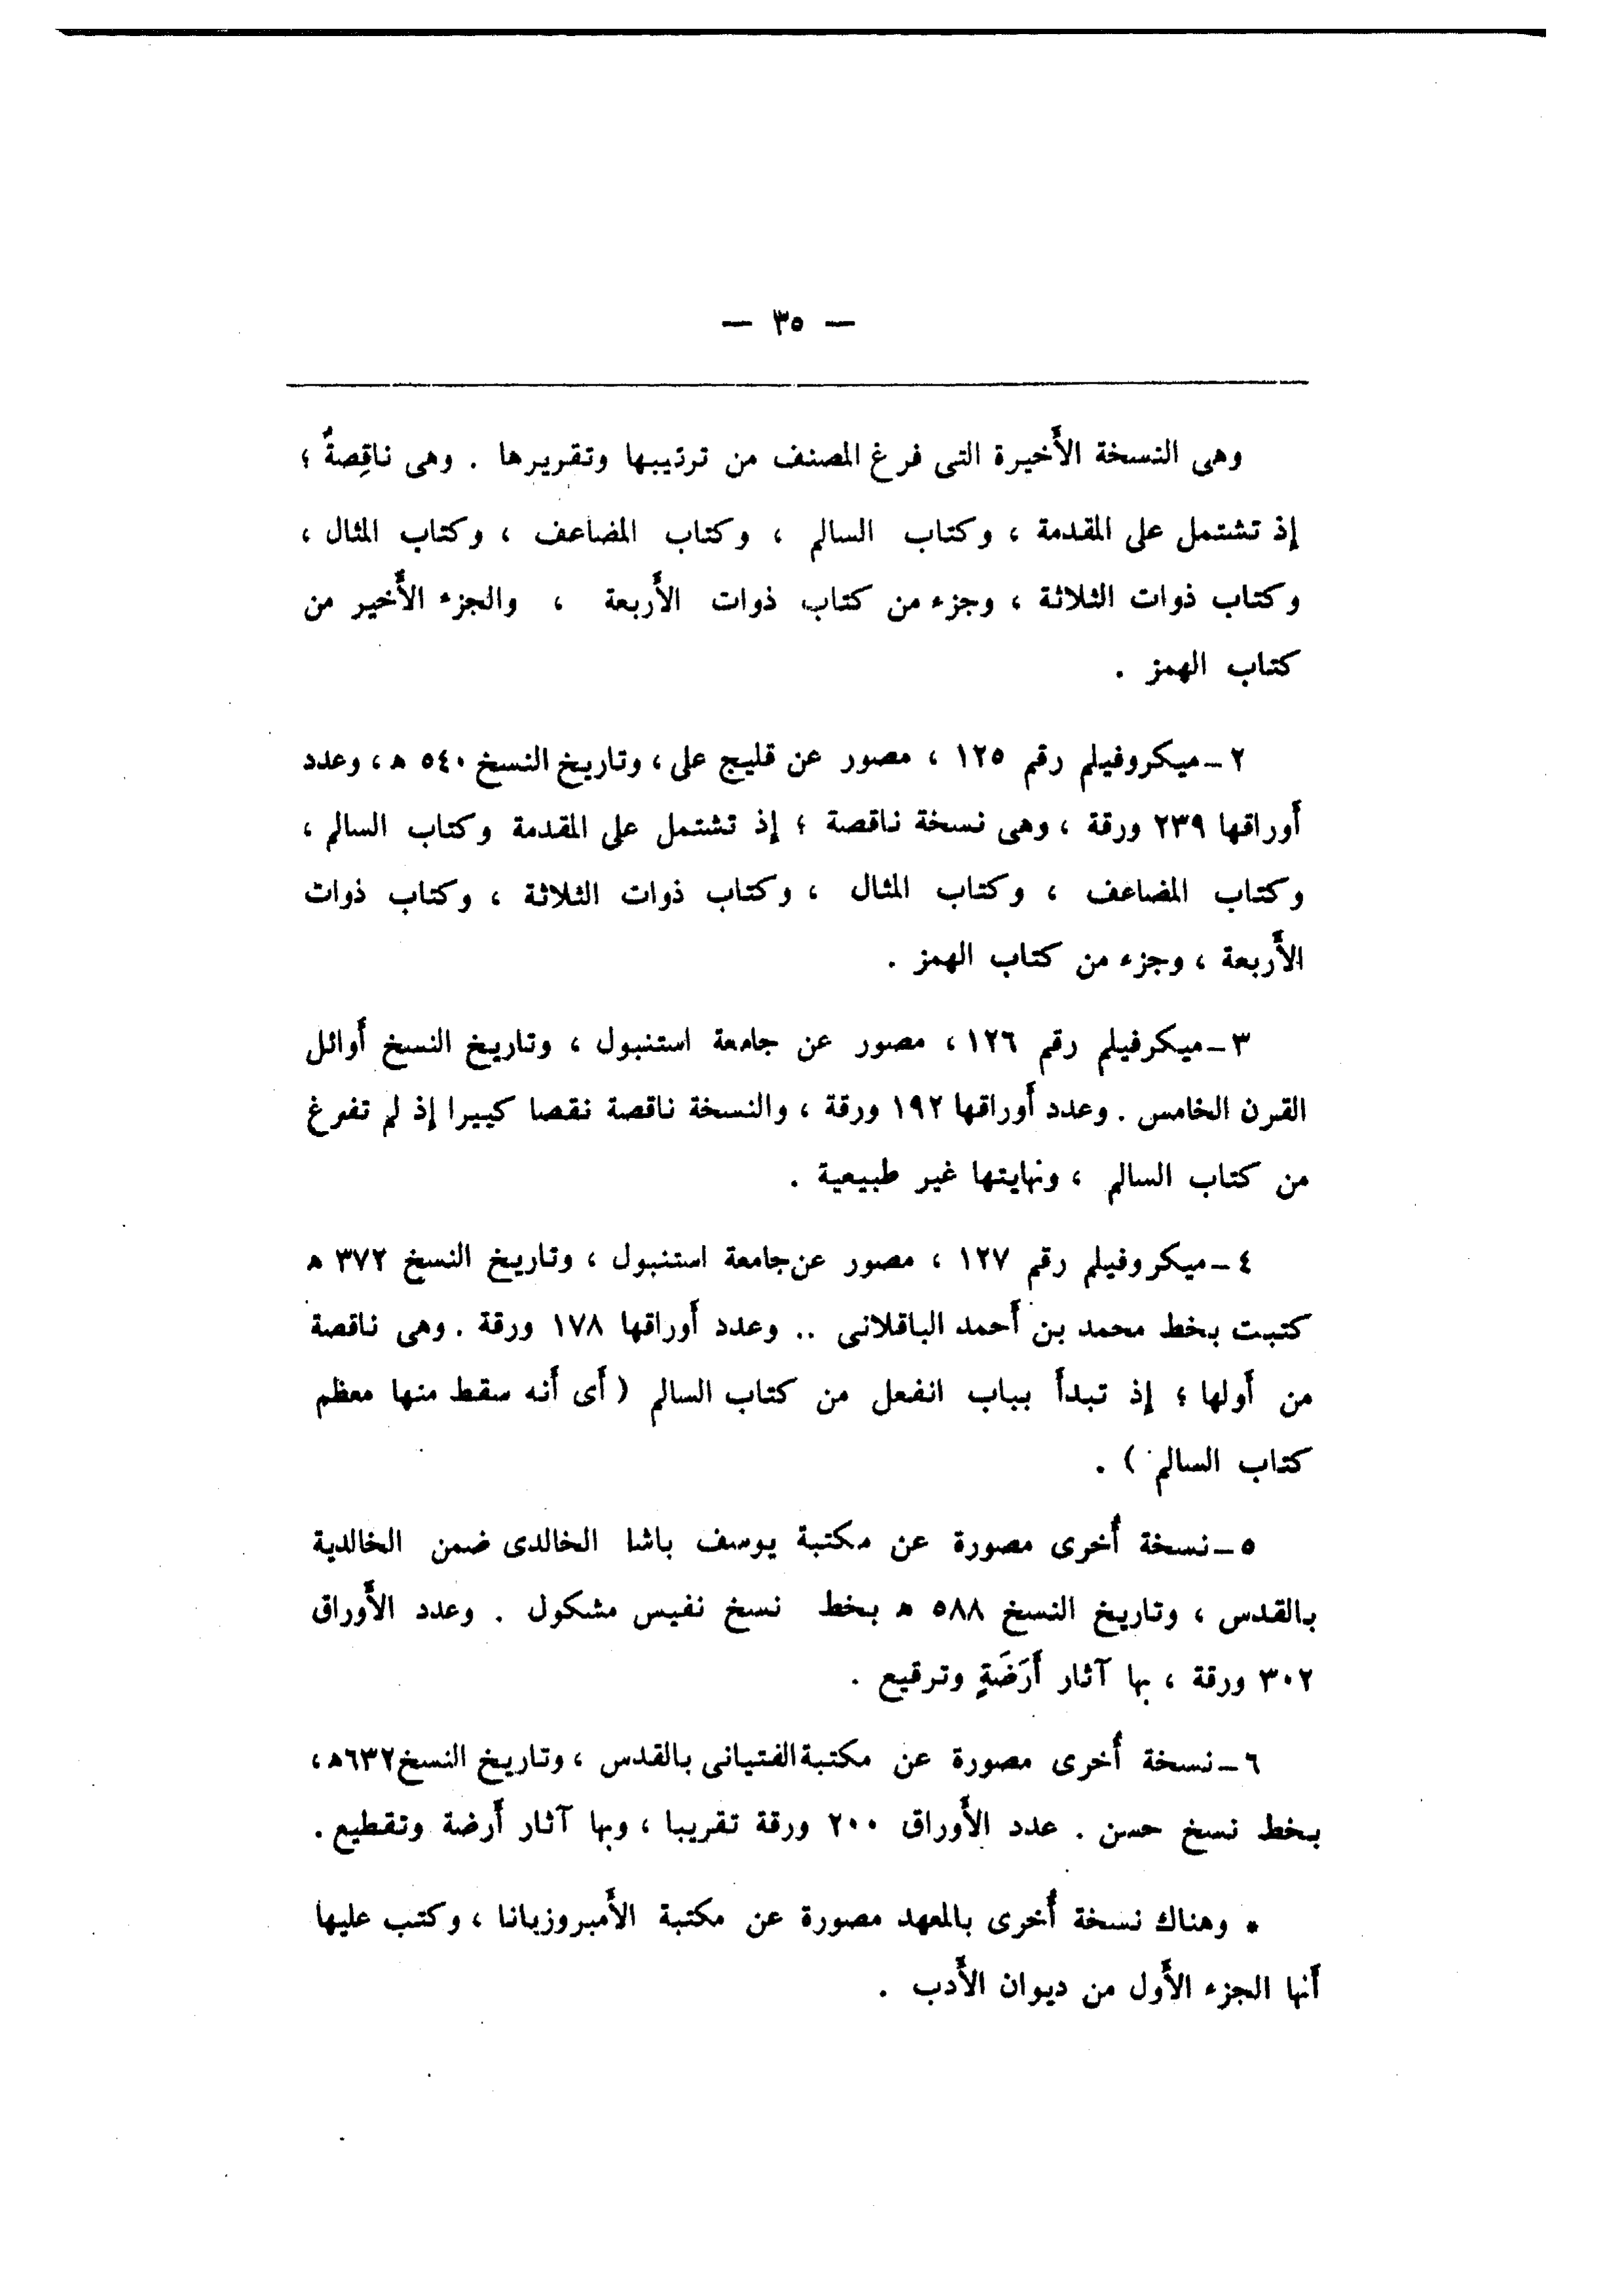 — ٣٥ —
وهى النسخة الأخيرة التى فرغ المصنف من ترتيبها وتقريرها . وهى ناقِصةٌ ؛
إذ تشتمل على المقدمة ، وكتاب السالم ، وكتاب المضاعف ، وكتاب المثال ،
وكتاب ذوات الثلاثة ، وجزء من كتاب ذوات الأربعة ، والجزء الأخير من
كتاب الهمز .
٢ – ميكروفيلم رقم ١٢٥ ، مصور عن قليج على ، وتاريخ النسخ ٥٤٠ ه ، وعدد
أوراقها ٢٣٩ ورقة ، وهى نسخة ناقصة ؛ إذ تشتمل على المقدمة وكتاب السالم ،
وكتاب المضاعف ، وكتاب المثال ، وكتاب ذوات الثلاثة ، وكتاب ذوات
الأربعة ، وجزء من كتاب الهمز .
٣ – ميكرفيلم رقم ١٢٦ ، مصور عن جامعة استنبول ، وتاريخ النسخ أوائل
القرن الخامس . وعدد أوراقها ١٩٢ ورقة ، والنسخة ناقصة نقصا كبيرا إذ لم تفرغ
من كتاب السالم ، ونهايتها غير طبيعية .
٤ – ميكروفيلم رقم ١٢٧ ، مصور عن جامعة استنبول ، وتاريخ النسخ ٣٧٢ ه
كتبت بخط محمد بن أحمد الباقلانى .. وعدد أوراقها ١٧٨ ورقة . وهى ناقصة
من أولها ؛ إذ تبدأ بباب انفعل من كتاب السالم ( أى أنه سقط منها معظم
كتاب السالم ) .
٥ – نسخة أخرى مصورة عن مكتبة يوسف باشا الخالدى ضمن الخالدية
بالقدس ، وتاريخ النسخ ٥٨٨ ه بخط نسخ نفيس مشكول . وعدد الأوراق
٣٠٢ ورقة ، بها آثار أَرَضَةٍ وترقيع .
٦ – نسخة أخرى مصورة عن مكتبة الفتيانى بالقدس ، وتاريخ النسخ ٦٣٢ه ،
بخط نسخ حسن . عدد الأوراق ٢٠٠ ورقة تقريبا ، وبها آثار أرضة وتقطيع .
* وهناك نسخة أخرى بالمعهد مصورة عن مكتبة الأمبروزيانا ، وكتب عليها
أنها الجزء الأول من ديوان الأدب .